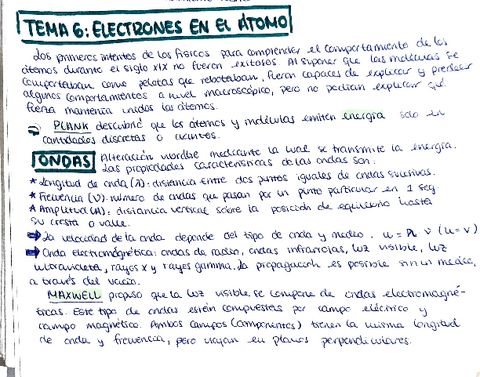 TEMA 6: ELECTRONES EN EL ÁTOMO
Los primeros intentos de los físicos para comprender el comportamiento de los
átomos durante el siglo XIX no fueron exitosos. Al suponer que las moléculas se
comportaban como pelotas que rebotaban, fueron capaces de explicar y predecir
algunos comportamientos a nivel macroscópico, pero no podían explicar qué
fuerza mantenía unidos los átomos.
PLANK descubrió que los átomos y moléculas emiten energía solo en
cantidades discretas o cuantos.
ONDAS Alteración vibratoria mediante la cual se transmite la energía.
Las propiedades características de las ondas son:
* Longitud de onda (λ): distancia entre dos puntos iguales de ondas sucesivas.
* Frecuencia (ν): número de ondas que pasan por un punto particular en 1 seg.
* Amplitud (A): distancia vertical sobre la posición de equilibrio hasta
su cresta o valle.
La velocidad de la onda depende del tipo de onda y medio. u = λ ν (u = v)
Onda electromagnética: ondas de radio, ondas infrarrojas, luz visible, luz
ultravioleta, rayos x y rayos gamma, la propagación es posible sin un medio,
a través del vacío.
MAXWELL propuso que la luz visible se compone de ondas electromagné-
ticas. Este tipo de ondas están compuestas por campo eléctrico y
campo magnético. Ambos campos (componentes) tienen la misma longitud
de onda y frecuencia, pero viajan en planos perpendiculares.